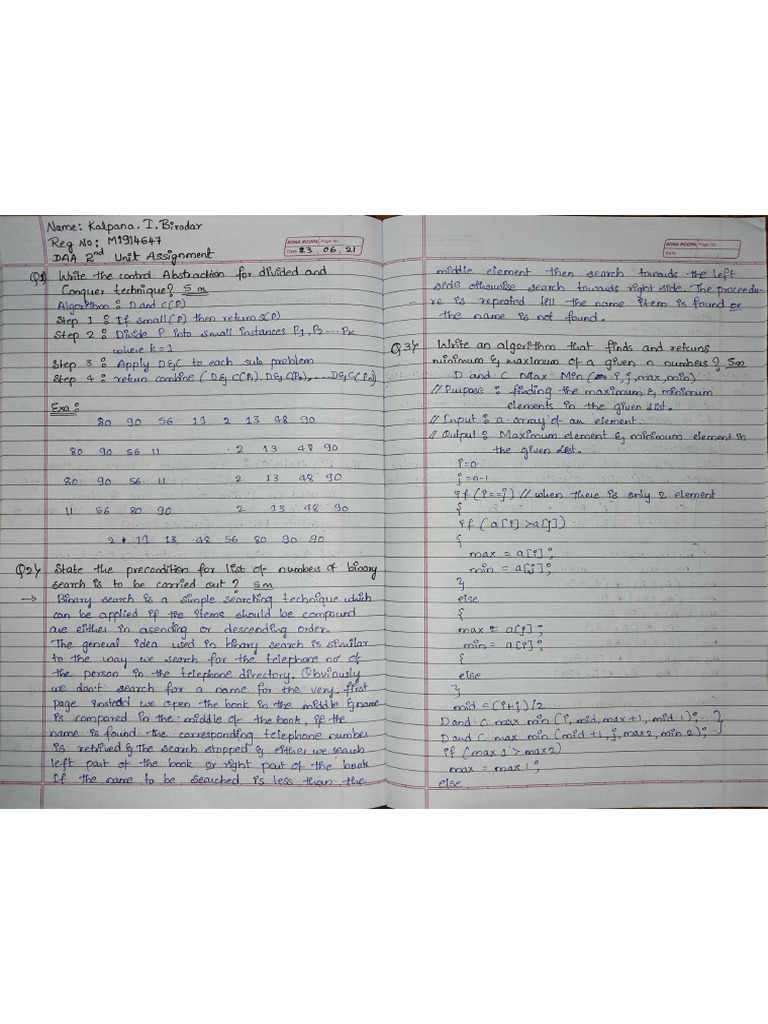 Name: Kalpana. I. Biradar
Reg No: M1914647
DAA 2nd Unit Assignment
SONA ROOPA Page No.
Date 23, 06, 21
Q1) Write the control Abstraction for divided and
Conquer technique? 5m
Algorithm: D and C(P)
Step 1: If small(P) then return s(P)
Step 2: Divide P into small instances P1, P2---Pk
where k=1
Step 3: Apply D&C to each sub problem
Step 4: return combine (D&C(P1). D&C(P2), ....D&C(Pn))
Exa:
80 90 56 11 2 13 48 90
80 90 56 11 2 13 48 90
80 90 56 11 2 13 48 90
11 56 80 90 2 13 48 90
2 11 13 48 56 80 90 90
Q2) State the precondition for list of numbers of binary
search is to be carried out? 5m
→ Binary search is a simple searching technique which
can be applied if the items should be compound
are either in asending or descending order.
The general idea used in binary search is similar
to the way we search for the telephone no of
the person in the telephone directory. Obviously
we don't search for a name for the very first
page instead we open the book in the middle & name
is compared in the middle of the book, if the
name is found the corresponding telephone number
is retrived & the search stopped & either we seach
left part of the book or right part of the book
If the name to be searched is less than the
SONA ROOPA Page No.
Date
middle element then search towards the left
side otherwise search towards right side. The proceedu-
re is repeated till the name item is found or
the name is not found.
Q3) Write an algorithm that finds and returns
minimum & maximum of a given n numbers? 5m
D and C Max Min (i, j, max, min)
// Purpose: finding the maximum & minimum
elements in the given list.
// Input: a-array of an element.
// Output: Maximum element & minimum element in
the given list.
i=0
j=n-1
if (i==j) // when there is only 2 element
{
if (a[i]>a[j])
{
max = a[i];
min = a[j];
}
else
{
max = a[j];
min = a[i];
{
else
}
mid = (i+j)/2
D and C max min (i, mid, max+1, mid 1); }
D and C max min (mid +1, j, max2, min 2); }
if (max 1 > max2)
max = max 1;
else